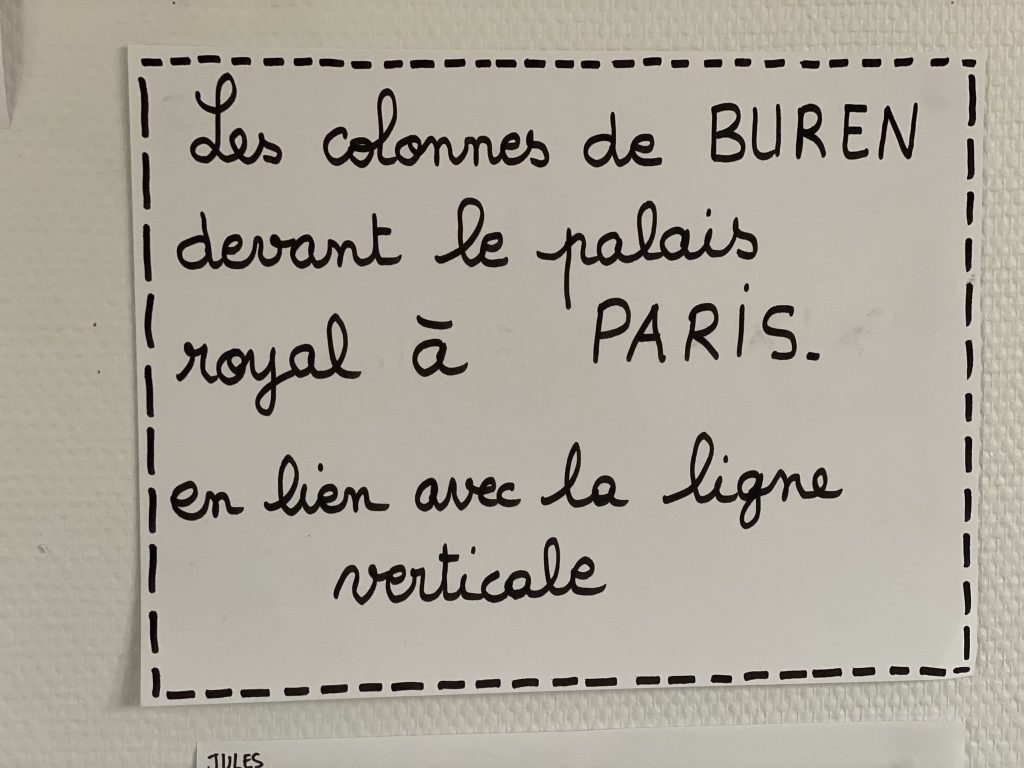 Les colonnes de BUREN
devant le palais
royal à PARIS.
en lien avec la ligne
verticale
JULES